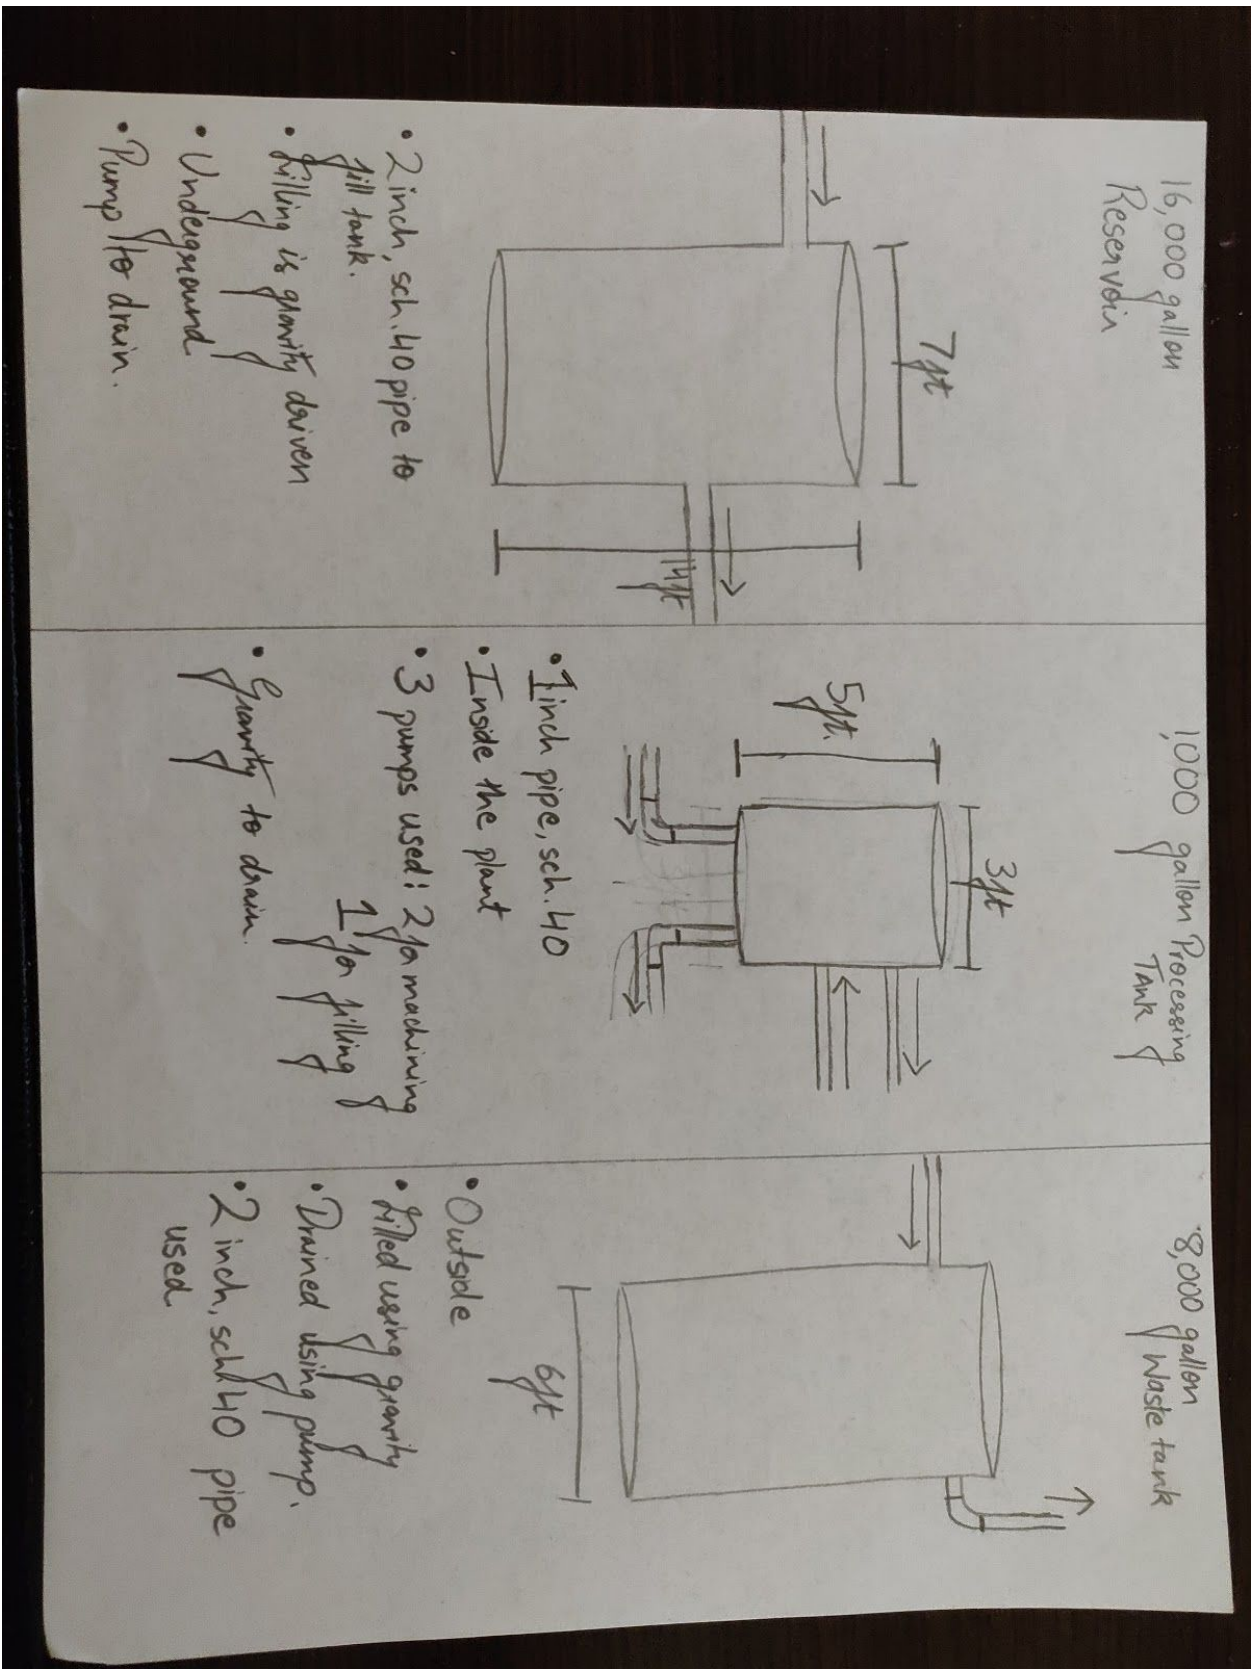 16,000 gallon
Reservoir
7ft
14ft
• 2 inch, sch. 40 pipe to
fill tank.
• Filling is gravity driven
• Underground
• Pump to drain.
1,000 gallon Processing
Tank
3ft
5ft.
• 1 inch pipe, sch. 40
• Inside the plant
• 3 pumps used: 2 for machining
1 for filling
• Gravity to drain.
8,000 gallon
Waste tank
6ft
• Outside
• Filled using gravity
• Drained using pump.
• 2 inch, sch 40 pipe
used